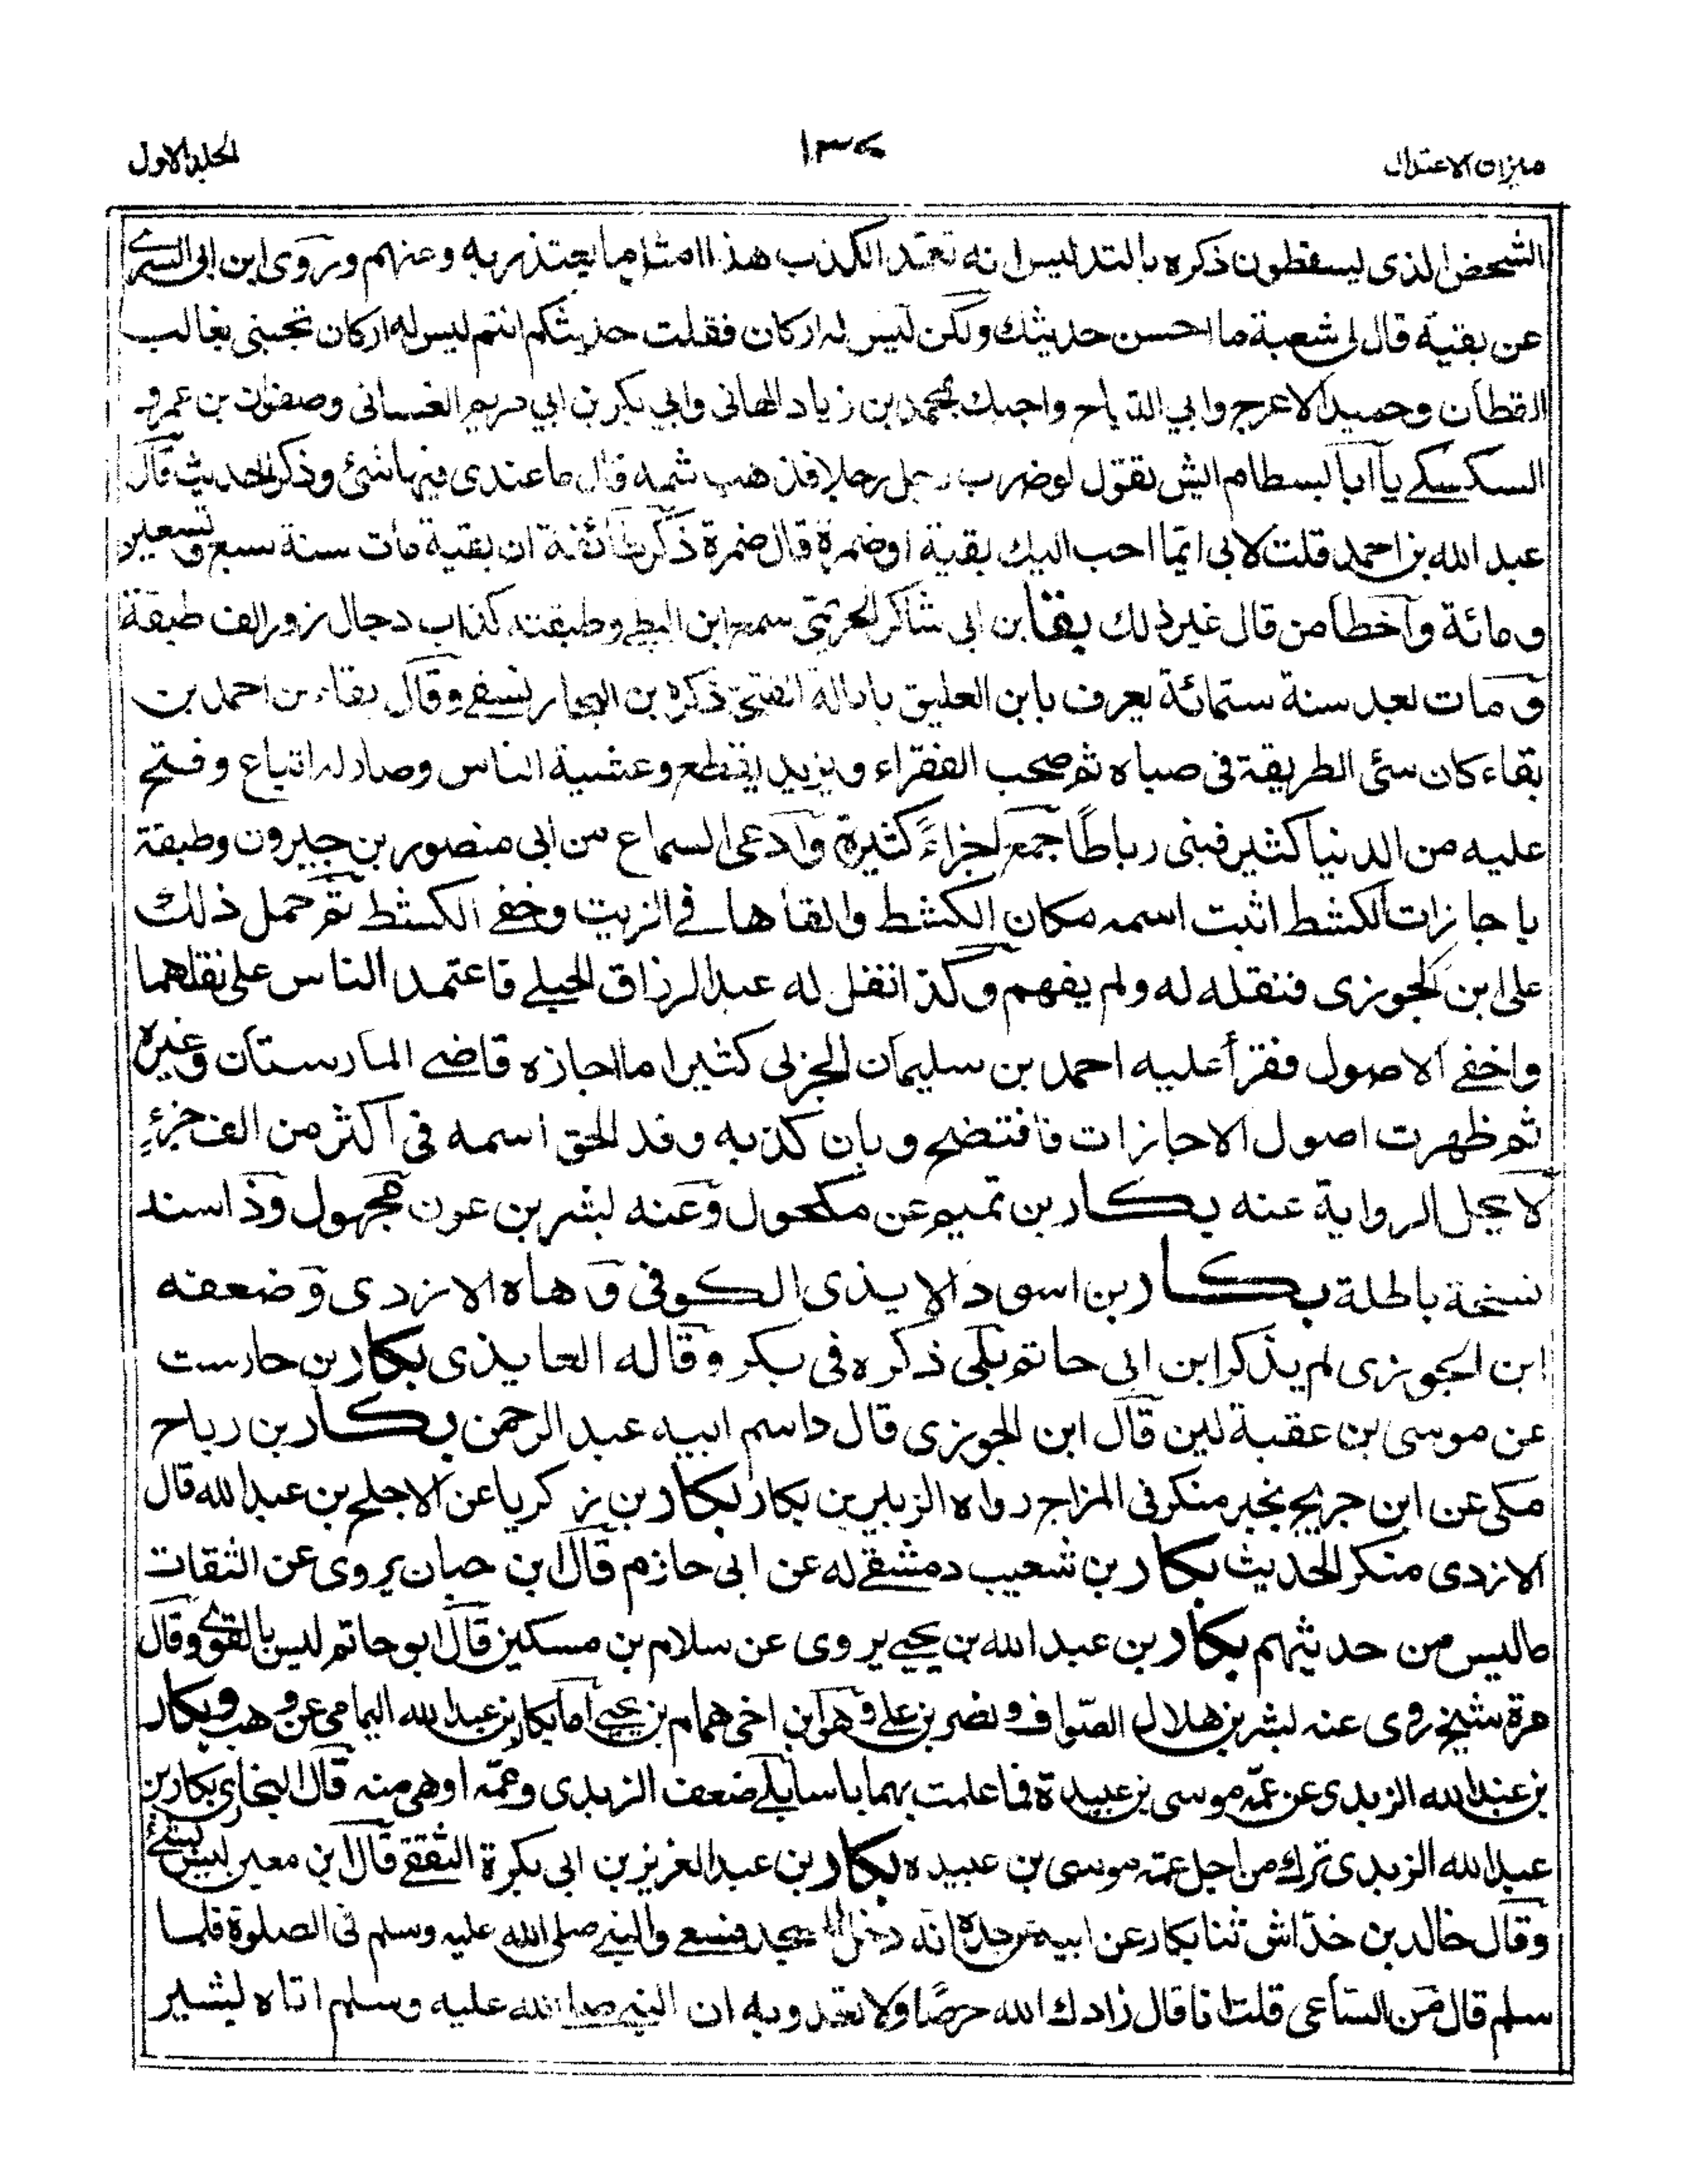 ميزان الاعتدال
١٣٧
الجلد الاول
الشخص الذى يسقطون ذكره بالتدليس انه تعمد الكذب هذا امثل ما يعتذر به وعنهم وروى ابن ابى السرى
عن بقية قال لى شعبة ما احسن حديثك ولكن ليس له اركان فقلت حديثكم انتم ليس له اركان تجبنى بغالب
القطان وحميد الاعرج وابي التياح واجيك بمحمد بن زياد الالهانى وابي بكر بن ابي مريم الغسانى وصفوان بن عمرو
السكسكے يا آبا بسطام ايش تقول لو ضرب رجل رجلا فذهب شمه قال ما عندى فيها شئ وذكر الحديث قال
عبد الله بن احمد قلت لابى ايما احب اليك بقية او ضمرة قال ضمرة ذكر طائفة ان بقية مات سنة سبع وتسعين
ومائة وآخطا من قال غير ذلك بقا بن ابى شاكر الحريمى سمع ابن البطى وطبقته كذاب دجال زور الف طبقة
ومات بعد سنة ستمائة يعرف بابن العليق ذكره بن النجار وقال بقاء بن احمد بن
بقاء كان سئ الطريقة فى صباه ثم صحب الفقراء ويزيد انقطع وغشية الناس وصار له اتباع وفتح
عليه من الدنيا كثير فبنى رباطا جمع اجزاءً كثيرة وادعى السماع من ابى منصور بن خيرون وطبقة
با جازات لكشط اثبت اسمه مكان الكشط والقاها فے الزيت وخفے الكشط ثم حمل ذلك
على ابن الجوزى فنقله له ولم يفهم وكذ انفل له عبد الرزاق الجيلے فاعتمد الناس على نقلهما
واخفے الاصول فقرأ عليه احمد بن سليمان الحربى كثيرا ما اجازه قاضے المارستان وغيره
ثم ظهرت اصول الاجازات فافتضح وبان كذبه وقد الحق اسمه فى اكثر من الف جزءٍ
لا يحل الرواية عنه بكار بن تميم عن مكحول وعنه بشر بن عون مجهول وذا سند
نسخة باطلة بكار بن اسود الايذى الكوفى وهاه الازدى وضعفه
ابن الجوزى لم يذكر ابن ابى حاتم بلى ذكره فى بكر وقال له العايذى بكار بن حارست
عن موسى بن عقبة لين قال ابن الجوزى قال داسم ابيه عبد الرحمن بكار بن رباح
مكى عن ابن جريج بخبر منكر فى المزاح رواه الزبير بن بكار بكار بن زكريا عن الاجلح بن عبد الله قال
الازدى منكر الحديث بكار بن شعيب دمشقے له عن ابى حازم قال ابن حبان يروى عن الثقات
ما ليس من حديثهم بكار بن عبد الله بن يحيے يروى عن سلام بن مسكين قال ابو حاتم ليس بالقوى وقال
مرة شيخ روى عنه بشر بن هلال الصواف ونصر بن على وهو ابن اخى همام بن يحيے اما بكار بن عبد الله اليمامى عن وهب وبكار
بن عبد الله الزبدى عن عمه موسى بن عبيدة فما علمت بهما باسا بلے ضعف الزبدى وعمه اوهى منه قال البخارى بكار بن
عبد الله الزبدى ترك من اجل عمه موسى بن عبيده بكار بن عبد العزيز بن ابى بكرة الثقفے قال ابن معين ليس بشئ
وقال خالد بن خداش ثنا بكار عن ابيه عن جده انه دخل المسجد فسعے والنبے صلى الله عليه وسلم فى الصلوة فلما
سلم قال من الساعى قلت انا قال زادك الله حرصًا ولا تعد وبه ان النبے صلى الله عليه وسلم اتاه بشير